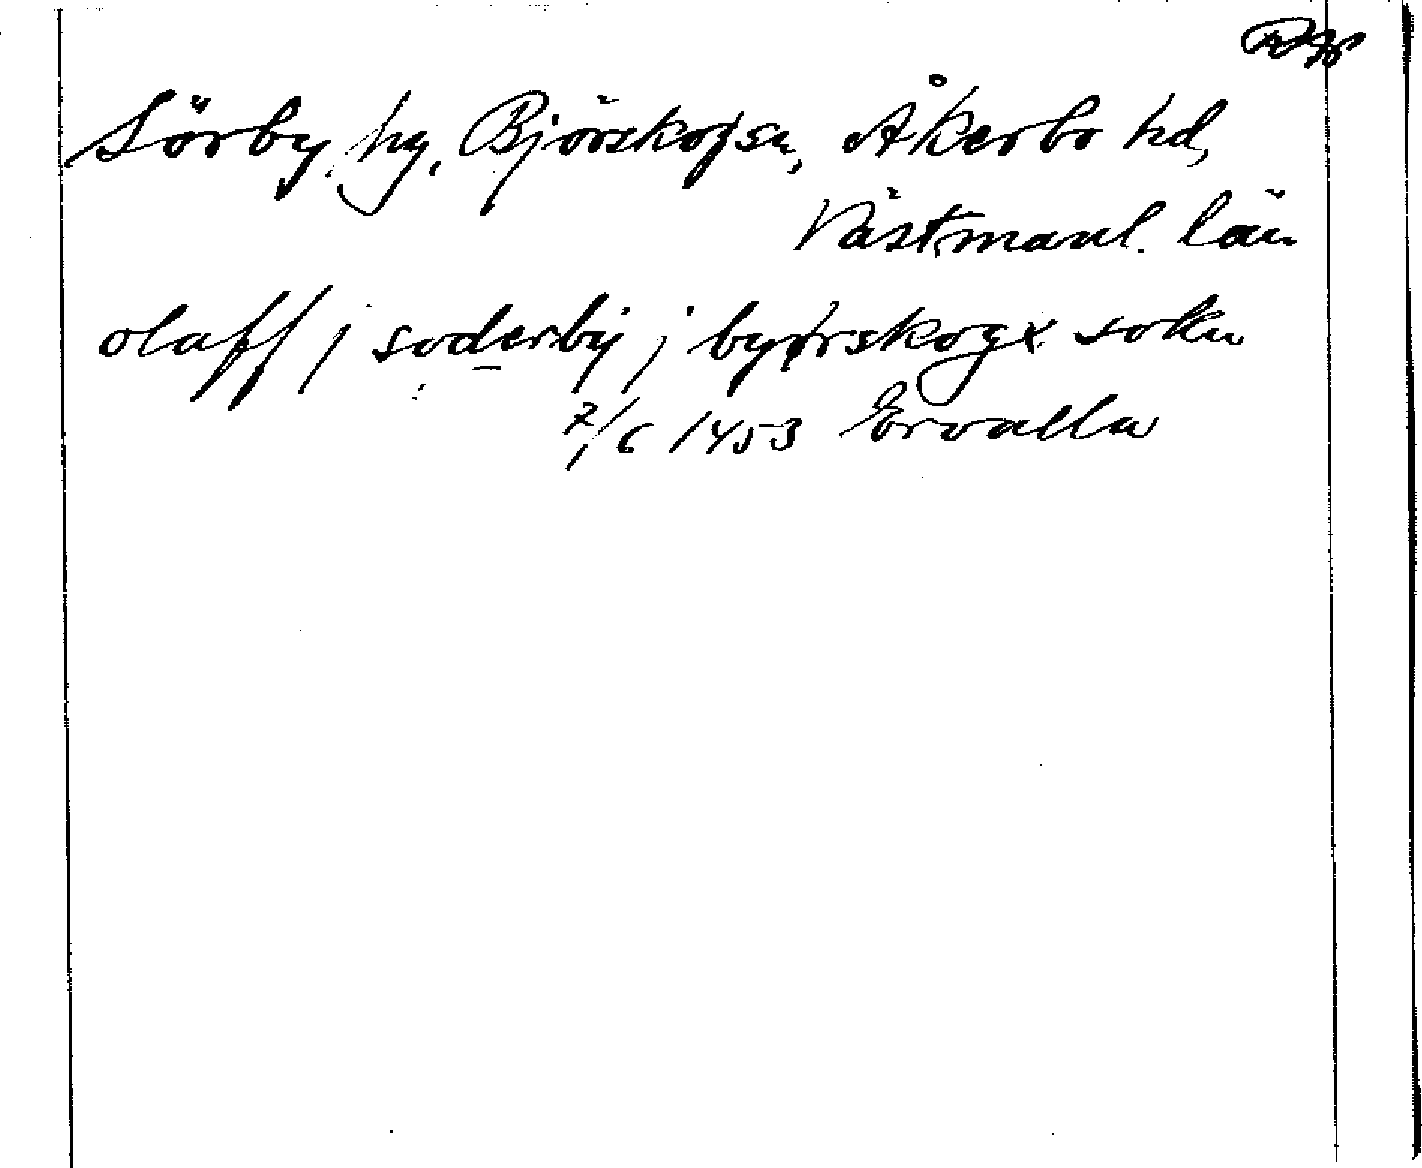 Sörby, hg, Björskog sn, Åkerbo hd,
Västmanl. län
olaff j soderby j byørskogx sokn
7/6 1453 Ervalla